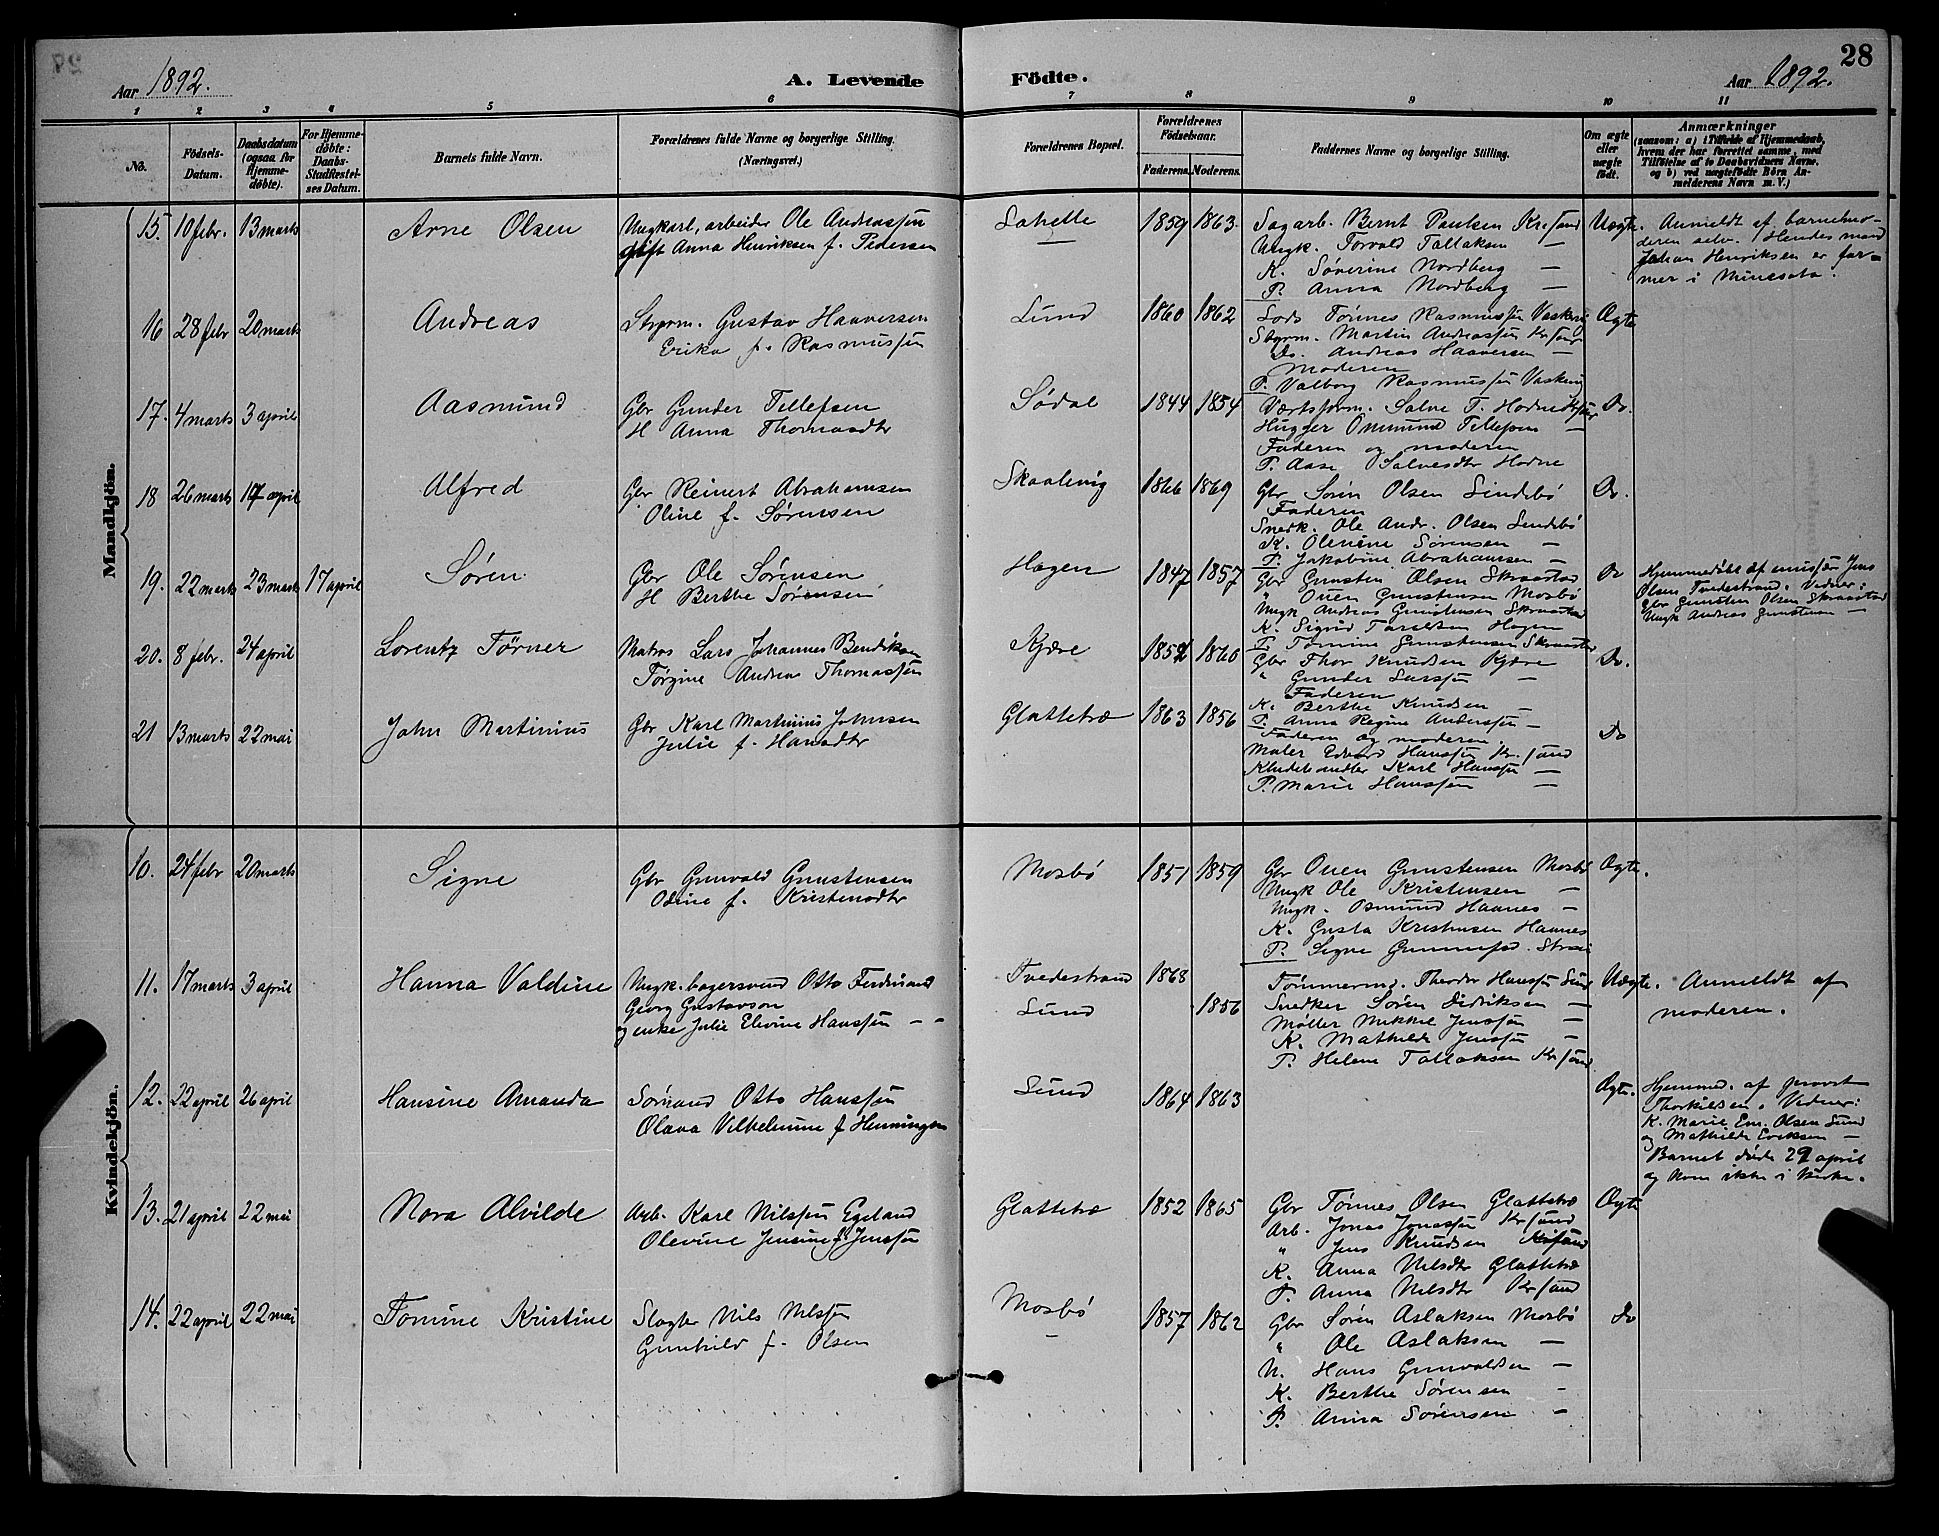 28
Aar 1892.
A. Levende Födte.
Aar 1892.
1 2 3 4 5 6 7 8 9 10 11
No.
Födsels-Datum.
Daabsdatum (ogsaa for Hjemmedöbte).
For Hjemmedöbte: Daabs-Stadfestelses Datum.
Barnets fulde Navn.
Forældrenes fulde Navne og borgerlige Stilling. (Næringsvei.)
Forældrenes Bopæl.
Forældrenes Födselsaar.
Faderens. Moderens.
Faddernes Navne og borgerlige Stilling.
Om ægte eller uægte födt.
Anmærkninger
(saasom: a) i Tilfælde af Hjemmedaab, hvem der har forrettet samme, med Tilföielse af to Daabsvidners Navne, og b) ved uægtefödte Börn Anmelderens Navn m. V.)
Mandkjön.
15. 10 febr. 13 marts Arne Olsen
Ungkarl, arbeider Ole Andreassen
gift Anna Henriksen f. Pedersen
Lahelle 1859 1863
Sagarb. Bernt Paulsen Kr.sand
Ungk. Torvald Tallaksen —
K. Søverine Nordberg —
P. Anna Nordberg —
Uægte. Anmeldt af barnemoderen selv. Hendes mand
Johan Henriksen er farmer i Minesota.
16 28 febr 20 marts Andreas
Styrm. Gustav Haaversen
Erika f. Rasmussen
Lund 1860 1862
Lods Tønnes Rasmussen Vaskerø
Styrm. Martin Andreassen Kr.sand
Do. Andreas Haaversen —
Moderen
P. Valborg Rasmussen Vaskerø
Ægte
17. 4 marts 3 april Aasmund
Gbr Gunder Tellefsen
H Anna Thomasdtr
Sødal 1844 1854
Værtsform. Salve T. Hodne Kr.sand
Hugger Ommund Tellefsen —
Faderen og moderen
P. Aase Salvesdtr Hodne
Do.
18 26 marts 17 april Alfred
Gbr Reinert Abrahamsen
Oline f. Sørensen
Skaalevig 1866 1869
Gbr Søren Olsen Lindebø
Faderen
Snedk. Ole Andr. Olsen Lindebø
K. Olevine Sørensen —
P. Jakobine Abrahamsen —
Do.
19. 22 marts 23 marts 17 april Søren
Gbr Ole Sørensen
H Berthe Sørensen
Hagen 1847 1857
Gbr Gunsten Olsen Skraastad
" Ouen Gunstensen Mosbø
Ungk Andreas Gunstensen Skraastad
K. Sigrid Hagen
P. Tomine Gunstensen Skraastad
Do
Hjemmedøbt af Jens
Olsen Tvedestrand. Vidner:
Gbr Gunsten Olsen Skraastad
Ungk Andreas Gunstensen —
20. 8 febr. 24 april Lorentz Tørner
Matros Lars Johannes Bendiksen
Tørgine Andrea Thomassen
Kjære 1852 1860
Gbr Thor Knudsen Kjære
" Gunder Larssen —
Faderen
K. Berthe Knudsen —
P. Anna Regine Anderssen —
Do.
21 13 marts 22 mai John Martinius
Gbr Karl Martinius Johnsen
Julie f. Hansdtr
Glattetræ 1863 1856
Faderen og moderen
Maler Edvard Hanssen Kr.sand
Kludehandler Karl Hanssen —
P. Marie Hanssen —
Do
Kvindekjön.
10. 24 febr 20 marts Signe
Gbr Gunvald Gunstensen
Oline f. Kristensdtr
Mosbø 1851 1859
Gbr Ouen Gunstensen Mosbø
Ungk Ole Kristensen —
Ungk. Osmund Haanes —
K. Gusta Kristensen Haanes
P. Signe
Ægte.
11. 17 marts 3 april Hanna Valdine
Ungk. bagersvend Otto Ferdinand
Georg Gustavson
og enke Julie Elevine Hanssen — —
Tvedestrand 1868
Lund 1856
Tømmerm. Theodor Hanssen Lund
Snedker Søren Didriksen —
Møller Mikkel Jenssen —
K. Mathilde Jenssen —
P. Helene Tallaksen Kr.sand
Uægte. Anmeldt af
moderen.
12. 22 april 26 april Hansine Amanda
Sømand Otto Hanssen
Olava Vilhelmine f Henningsen
Lund 1864 1863
Ægte.
Hjemmed. af provst
Thorkildsen. Vidner:
K. Marie Em. Olsen Lund
og Mathilde Eriksen —
Barnet døde 29 april
og kom ikke i kirke.
13. 21 april 22 mai Nora Alvilde
Arb. Karl Nilssen Egeland
Olevine Jensine f. Jenssen
Glattetræ 1852 1865
Gbr Tønnes Olsen Glattetræ
Arb. Jonas Jonassen Kr.sand
" Jens Knudsen Kr.sand
K. Anna Nilsdtr Glattetræ
P. Anna Nilsdtr Kr.sand
Ægte
14. 22 april 22 mai Tomine Kristine
Slagter Nils Nilssen
Gunhild f. Olsen
Mosbø
—
1857 1862
Gbr Søren Aslaksen Mosbø
" Ole Aslaksen —
U. Hans Gunvaldsen —
K. Berthe Sørensen —
P. Anna Sørensen —
Do